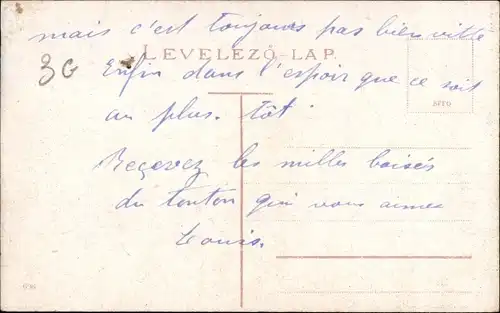 mais c'est toujours pas bien vitte
LEVELEZŐ-LAP.
3G
Enfin dans l'espoir que ce soit
au plus. tôt.
Reçevez les milles baisés
du tonton qui vous aime
Louis.